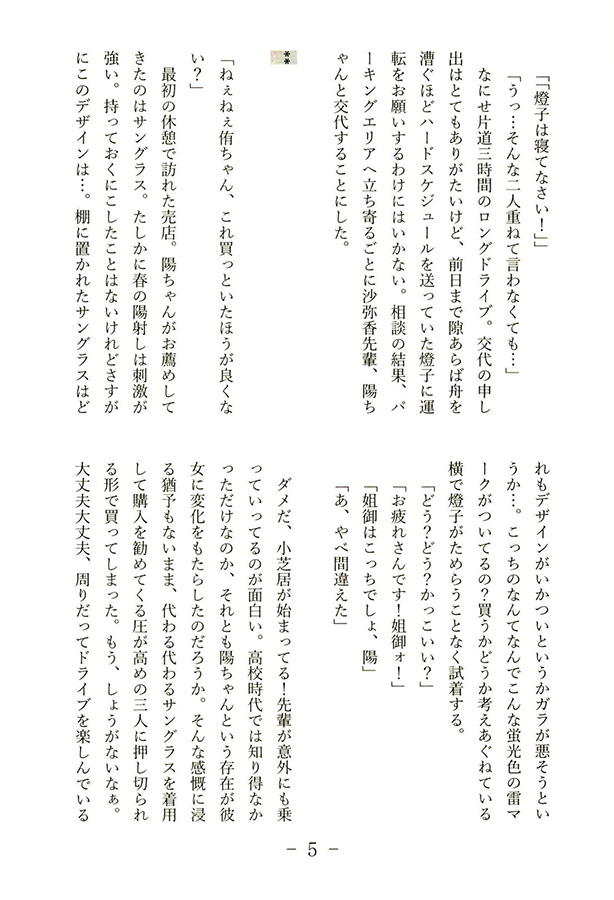 「「燈子は寝てなさい！」」
「うっ…そんな二人重ねて言わなくても…」
なにせ片道三時間のロングドライブ。交代の申し
出はとてもありがたいけど、前日まで隙あらば舟を
漕ぐほどハードスケジュールを送っていた燈子に運
転をお願いするわけにはいかない。相談の結果、パ
ーキングエリアへ立ち寄るごとに沙弥香先輩、陽ち
ゃんと交代することにした。
**
「ねぇねぇ侑ちゃん、これ買っといたほうが良くな
い？」
最初の休憩で訪れた売店。陽ちゃんがお薦めして
きたのはサングラス。たしかに春の陽射しは刺激が
強い。持っておくにこしたことはないけれどさすが
にこのデザインは…。棚に置かれたサングラスはど
れもデザインがいかついというかガラが悪そうとい
うか…。こっちのなんてなんでこんな蛍光色の雷マ
ークがついてるの？買うかどうか考えあぐねている
横で燈子がためらうことなく試着する。
「どう？どう？かっこいい？」
「お疲れさんです！姐御ォ！」
「姐御はこっちでしょ、陽」
「あ、やべ間違えた」
ダメだ、小芝居が始まってる！先輩が意外にも乗
っていってるのが面白い。高校時代では知り得なか
っただけなのか、それとも陽ちゃんという存在が彼
女に変化をもたらしたのだろうか。そんな感慨に浸
る猶予もないまま、代わる代わるサングラスを着用
して購入を勧めてくる圧が高めの三人に押し切られ
る形で買ってしまった。もう、しょうがないなぁ。
大丈夫大丈夫、周りだってドライブを楽しんでいる
- 5 -